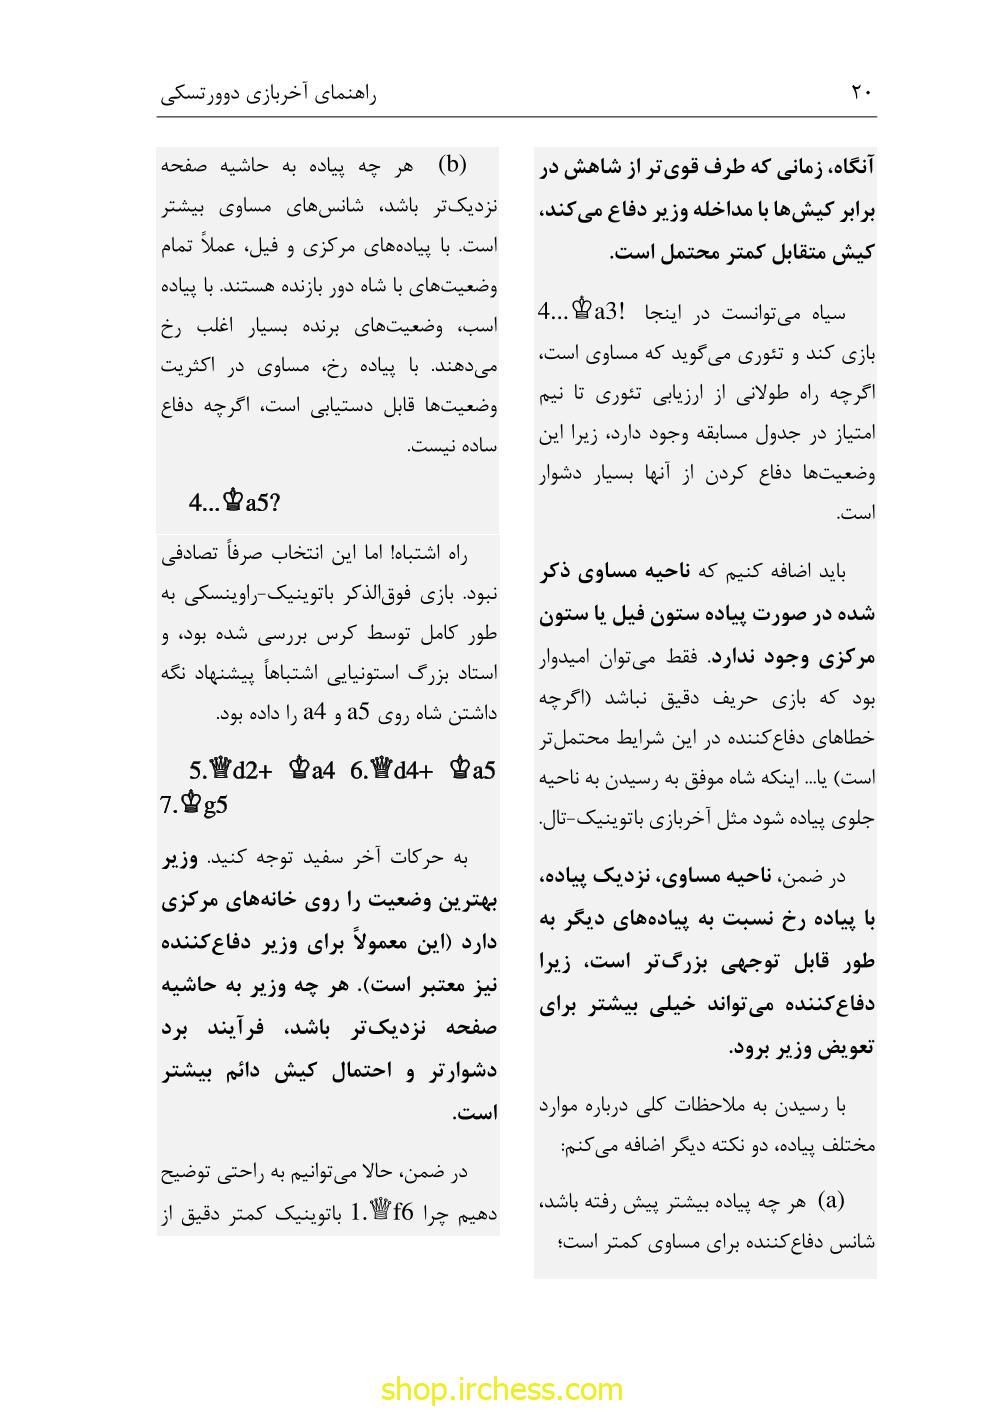 ۲۰
راهنمای آخربازی دوورتسکی
آنگاه، زمانی که طرف قوی‌تر از شاهش در
برابر کیش‌ها با مداخله وزیر دفاع می‌کند،
کیش متقابل کمتر محتمل است.
سیاه می‌توانست در اینجا 4...♔a3!
بازی کند و تئوری می‌گوید که مساوی است،
اگرچه راه طولانی از ارزیابی تئوری تا نیم
امتیاز در جدول مسابقه وجود دارد، زیرا این
وضعیت‌ها دفاع کردن از آنها بسیار دشوار
است.
باید اضافه کنیم که ناحیه مساوی ذکر
شده در صورت پیاده ستون فیل یا ستون
مرکزی وجود ندارد. فقط می‌توان امیدوار
بود که بازی حریف دقیق نباشد (اگرچه
خطاهای دفاع‌کننده در این شرایط محتمل‌تر
است) یا... اینکه شاه موفق به رسیدن به ناحیه
جلوی پیاده شود مثل آخربازی باتوینیک-تال.
در ضمن، ناحیه مساوی، نزدیک پیاده،
با پیاده رخ نسبت به پیاده‌های دیگر به
طور قابل توجهی بزرگ‌تر است، زیرا
دفاع‌کننده می‌تواند خیلی بیشتر برای
تعویض وزیر برود.
با رسیدن به ملاحظات کلی درباره موارد
مختلف پیاده، دو نکته دیگر اضافه می‌کنم:
(a) هر چه پیاده بیشتر پیش رفته باشد،
شانس دفاع‌کننده برای مساوی کمتر است؛
(b) هر چه پیاده به حاشیه صفحه
نزدیک‌تر باشد، شانس‌های مساوی بیشتر
است. با پیاده‌های مرکزی و فیل، عملاً تمام
وضعیت‌های با شاه دور بازنده هستند. با پیاده
اسب، وضعیت‌های برنده بسیار اغلب رخ
می‌دهند. با پیاده رخ، مساوی در اکثریت
وضعیت‌ها قابل دستیابی است، اگرچه دفاع
ساده نیست.
4...♔a5?
راه اشتباه! اما این انتخاب صرفاً تصادفی
نبود. بازی فوق‌الذکر باتوینیک-راوینسکی به
طور کامل توسط کرس بررسی شده بود، و
استاد بزرگ استونیایی اشتباهاً پیشنهاد نگه
داشتن شاه روی a5 و a4 را داده بود.
5.♕d2+ ♔a4 6.♕d4+ ♔a5
7.♔g5
به حرکات آخر سفید توجه کنید. وزیر
بهترین وضعیت را روی خانه‌های مرکزی
دارد (این معمولاً برای وزیر دفاع‌کننده
نیز معتبر است). هر چه وزیر به حاشیه
صفحه نزدیک‌تر باشد، فرآیند برد
دشوارتر و احتمال کیش دائم بیشتر
است.
در ضمن، حالا می‌توانیم به راحتی توضیح
دهیم چرا 1.♕f6 باتوینیک کمتر دقیق از
shop.irchess.com